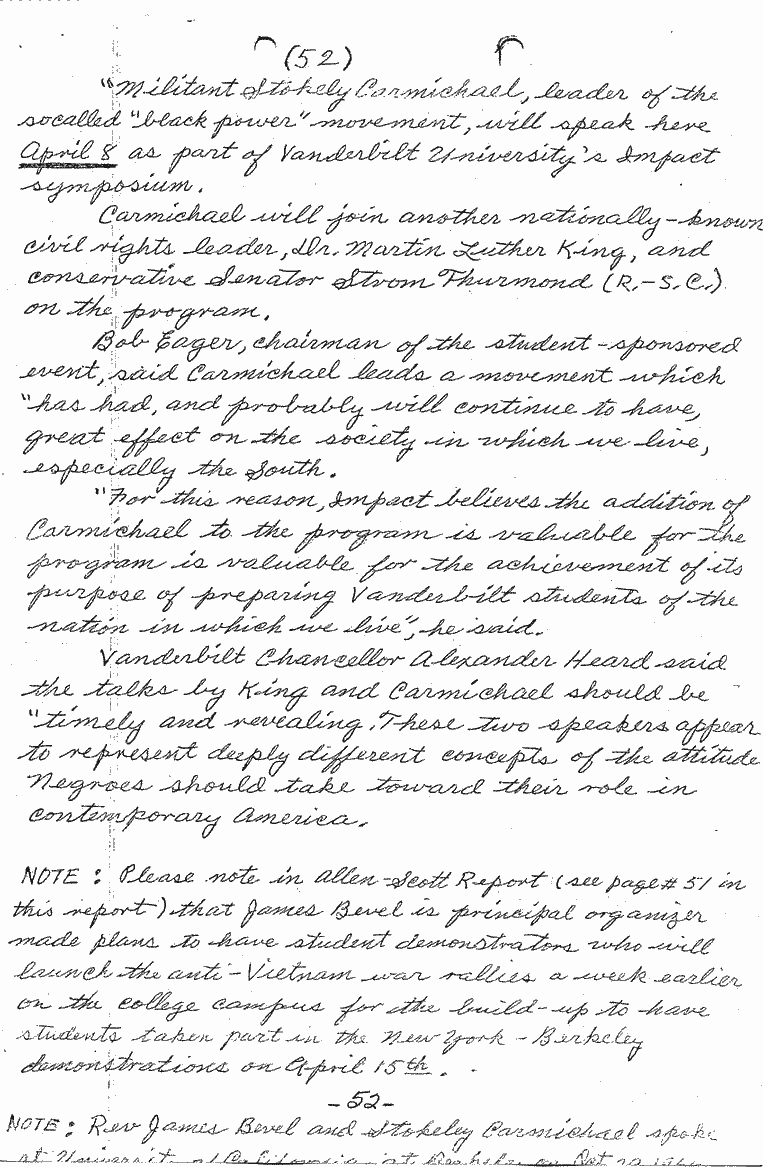 (52)
"Militant Stokely Carmichael, leader of the
socalled "black power" movement, will speak here
April 8 as part of Vanderbilt University's Impact
symposium.
Carmichael will join another nationally-known
civil rights leader, Dr. Martin Luther King, and
conservative Senator Strom Thurmond (R.-S.C.)
on the program.
Bob Eager, chairman of the student-sponsored
event, said Carmichael leads a movement which
"has had, and probably will continue to have,
great effect on the society in which we live,
especially the South.
"For this reason, Impact believes the addition of
Carmichael to the program is valuable for the
program is valuable for the achievement of its
purpose of preparing Vanderbilt students of the
nation in which we live", he said.
Vanderbilt Chancellor Alexander Heard said
the talks by King and Carmichael should be
"timely and revealing. These two speakers appear
to represent deeply different concepts of the attitude
Negroes should take toward their role in
contemporary America.
NOTE: Please note in Allen-Scott Report (see page # 51 in
this report) that James Bevel is principal organizer
made plans to have student demonstrators who will
launch the anti-Vietnam war rallies a week earlier
on the college campus for the build-up to have
students taken part in the New York - Berkeley
demonstrations on April 15th.
-52-
NOTE: Rev James Bevel and Stokeley Carmichael spoke
at University of California at Berkeley on Oct